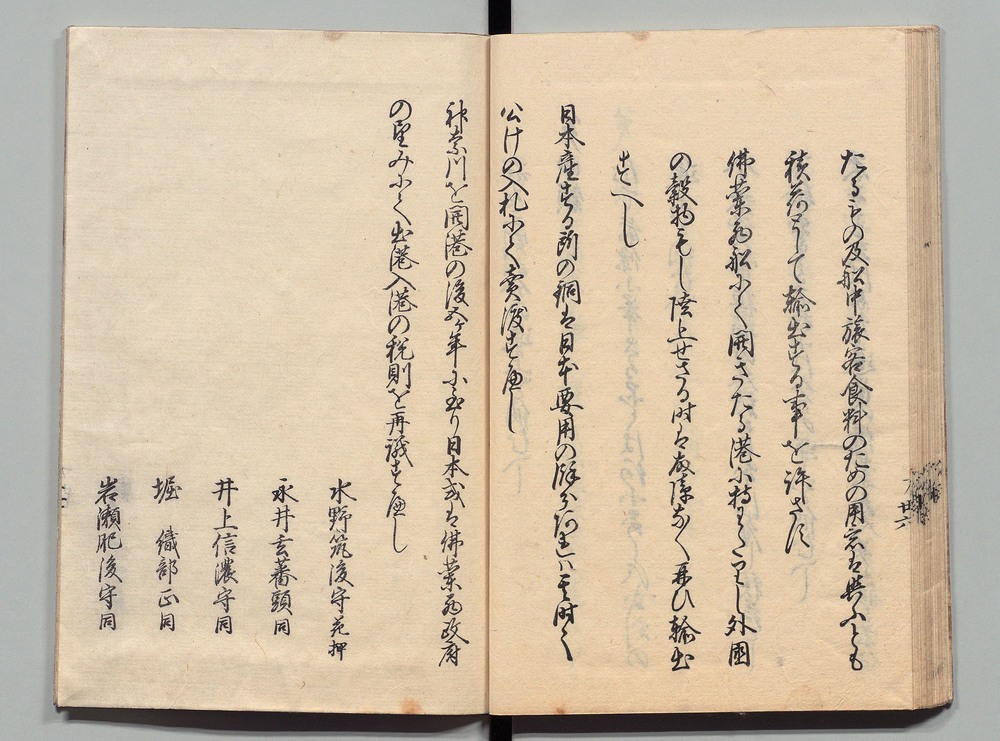 たるもの及船中旅客食料のための用意は與ふとも
積荷として輸出する事を許さす
佛蘭西船にて開きたる港に持来りし外國
の穀物もし陸上せさる時は故障なく再ひ輸出
すへし
日本産する所の銅は日本要用の餘分あれハ其時々
公けの入札にて賣渡すへし
神奈川を開港の後五ケ年に至り日本或は佛蘭西政府
の望みにて出港入港の税則を再議すへし
水野筑後守花押
永井玄蕃頭同
井上信濃守同
堀織部正同
岩瀬肥後守同
廿六